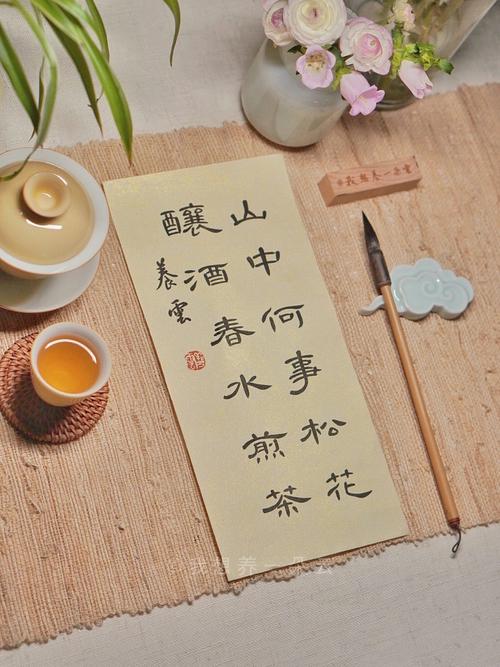 山中何事松花
釀酒春水煎茶
养雲
我想养一朵雲
我想养一朵云